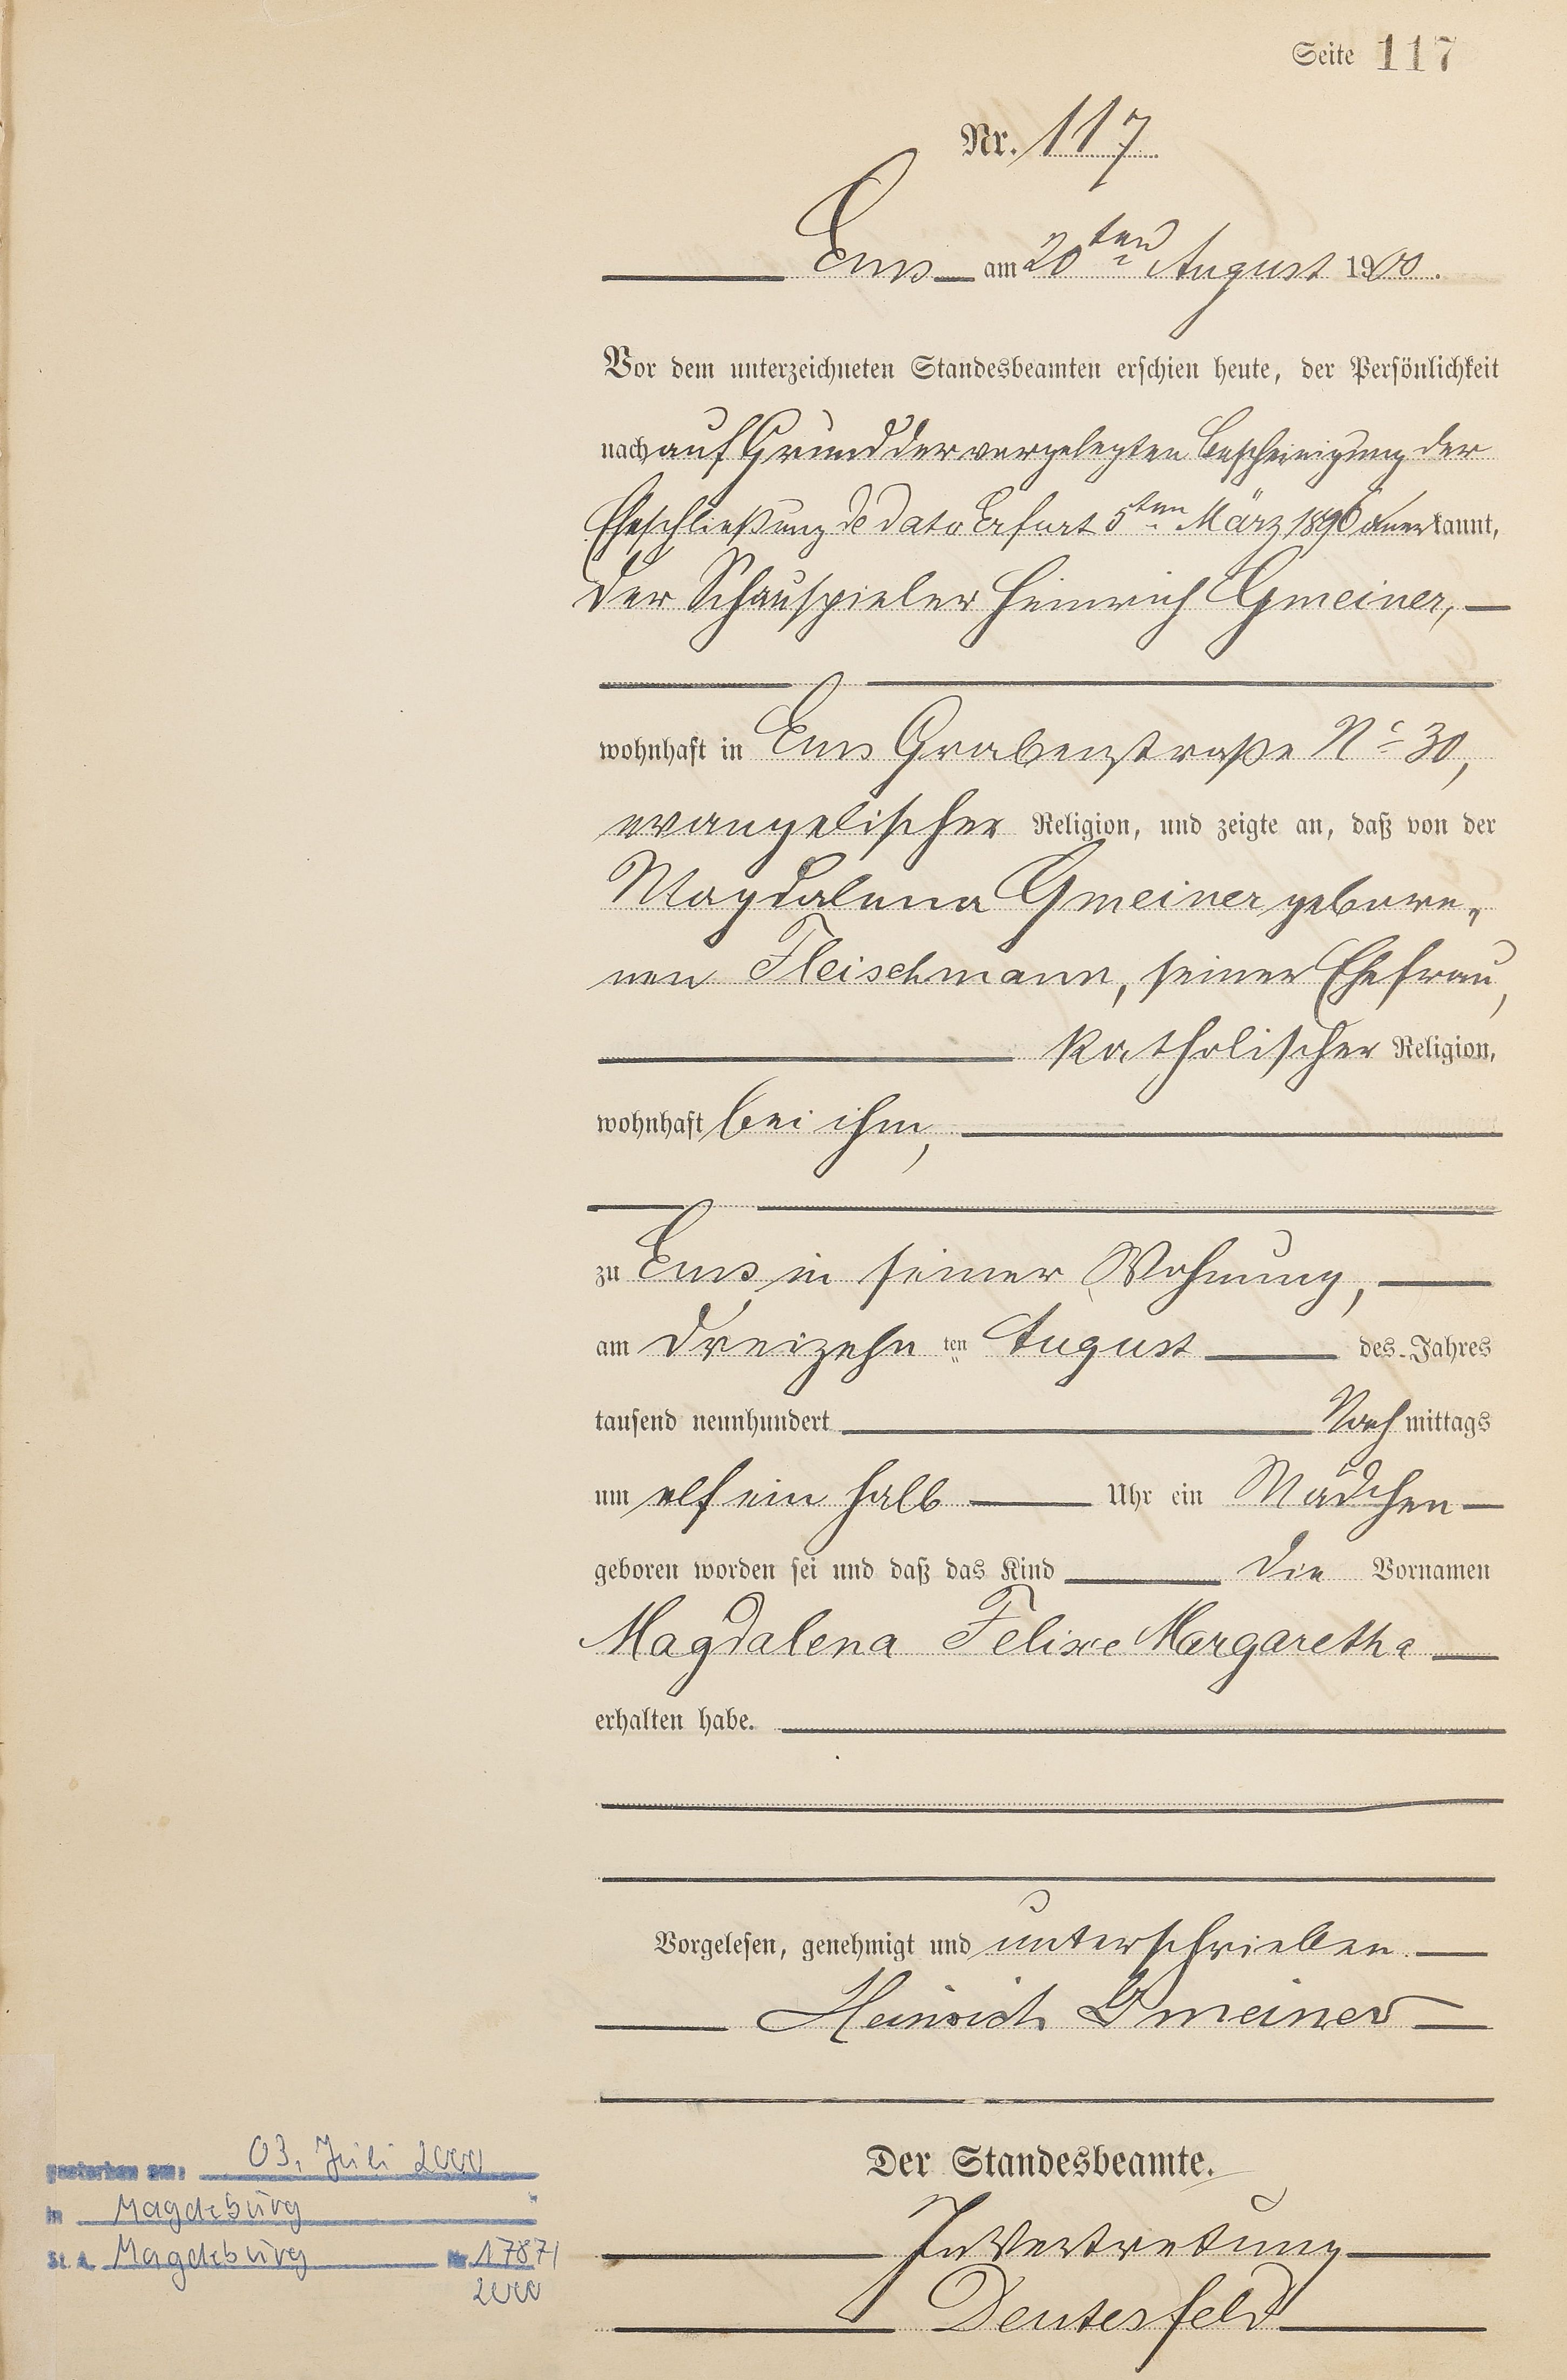 Seite 117
Nr. 117
Ems am 20ten August 1900.
Vor dem unterzeichneten Standesbeamten erschien heute, der Persönlichkeit
nach auf Grund der vorgelegten Bescheinigung der
Eheschließung de dato Erfurt 5ten März 1896 anerkannt,
der Schauspieler Heinrich Gmeiner,
wohnhaft in Ems Grabenstraße No 30,
evangelischer Religion, und zeigte an, daß von der
Magdalena Gmeiner gebore-
nen Fleischmann, seiner Ehefrau,
katholischer Religion,
wohnhaft bei ihm,
zu Ems, in seiner Wohnung,
am dreizehn ten August des Jahres
tausend neunhundert Nachmittags
um elf ein halb Uhr ein Mädchen
geboren worden sei und daß das Kind die Vornamen
Magdalena Felixe Margaretha
erhalten habe.
Vorgelesen, genehmigt und unterschrieben.
Heinrich Gmeiner
Der Standesbeamte.
In Vertretung
Deutesfeld
gestorben am: 03. Juli 2000
in Magdeburg
St. A. Magdeburg Nr. 1787/
2000